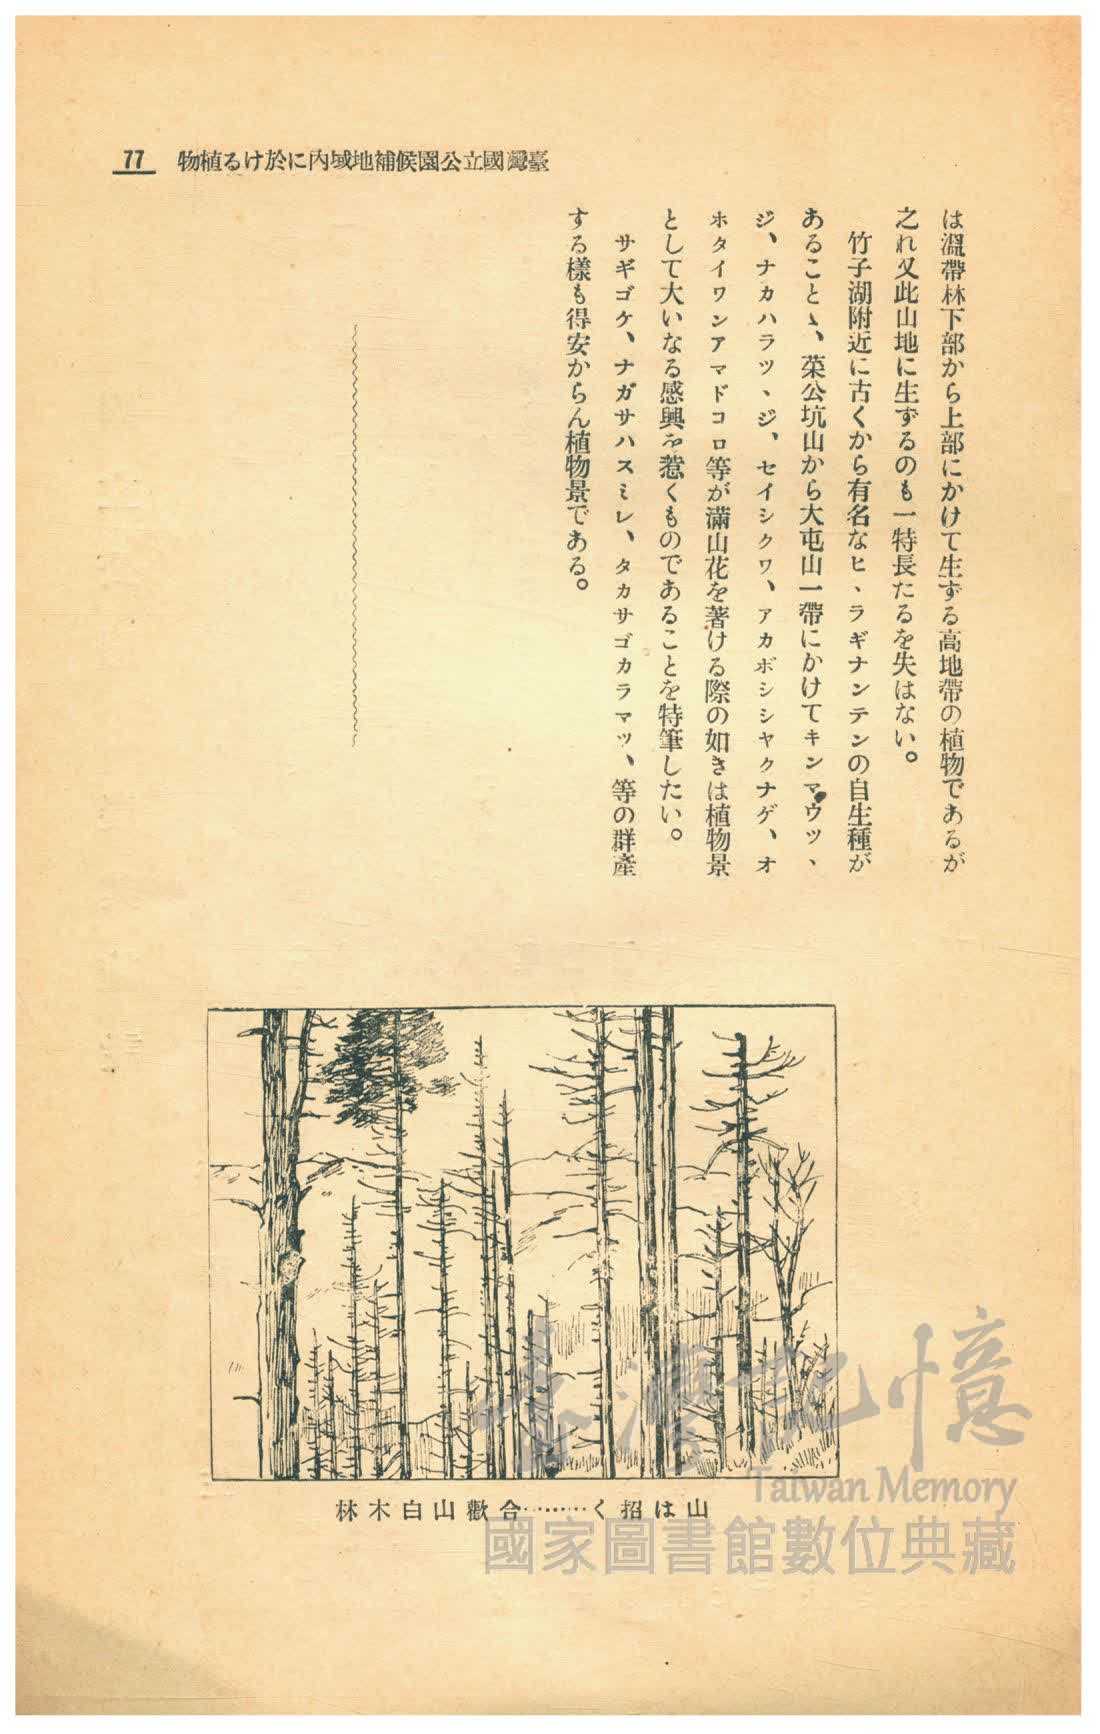 臺灣國立公園候補地域內に於ける植物 77
は溫帶林下部から上部にかけて生ずる高地帶の植物であるが
之れ又此山地に生ずるのも一特長たるを失はない。
竹子湖附近に古くから有名なヒヽラギナンテンの自生種が
あることゝ、菜公坑山から大屯山一帶にかけてキンマウツヽ
ジ、ナカハラツヽジ、セイシクワ、アカボシシヤクナゲ、オ
ホタイワンアマドコロ等が滿山花を著ける際の如きは植物景
として大いなる感興を惹くものであることを特筆したい。
サギゴケ、ナガサハスミレ、タカサゴカラマツ、等の群產
する樣も得安からん植物景である。
山は招く………合歡山白木林
臺灣記憶
Taiwan Memory
國家圖書館數位典藏